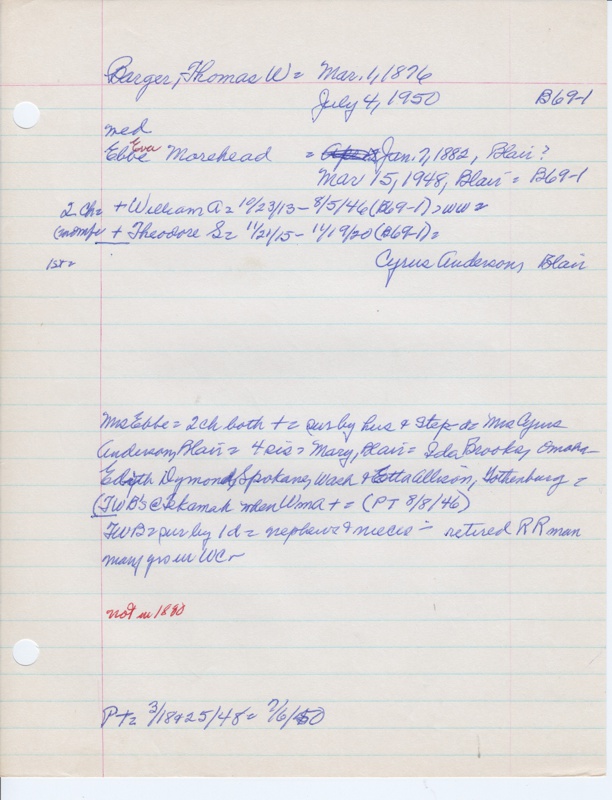 Barger, Thomas W = Mar. 1, 1876
July 4, 1950 B69-1
med
Eva
Ebbe Morehead = Jan. 7, 1882, Blair?
Mar 15, 1948, Blair = B69-1
2 Ch = + William A = 10/23/13 - 8/5/46 (B69-1) > WW 2
+ Theodore S = 11/21/15 - 11/19/20 (B69-1) =
1st =
Cyrus Anderson, Blair
Mrs Ebbe = 2 ch both + = sur by hus & step-d = Mrs Cyrus
Anderson, Blair = 4 sis = Mary, Blair = Ida Brooks, Omaha -
Edith Dymond, Spokane, Wash & Etta Allison, Gothenburg =
(TWB's @ Tekamah when Wm A + = (PT 8/8/46)
TWB = sur by 1 d = nephews & nieces - retired RR man
many yrs in WC -
not in 1880
PT = 3/18 & 25/48 = 7/6/50